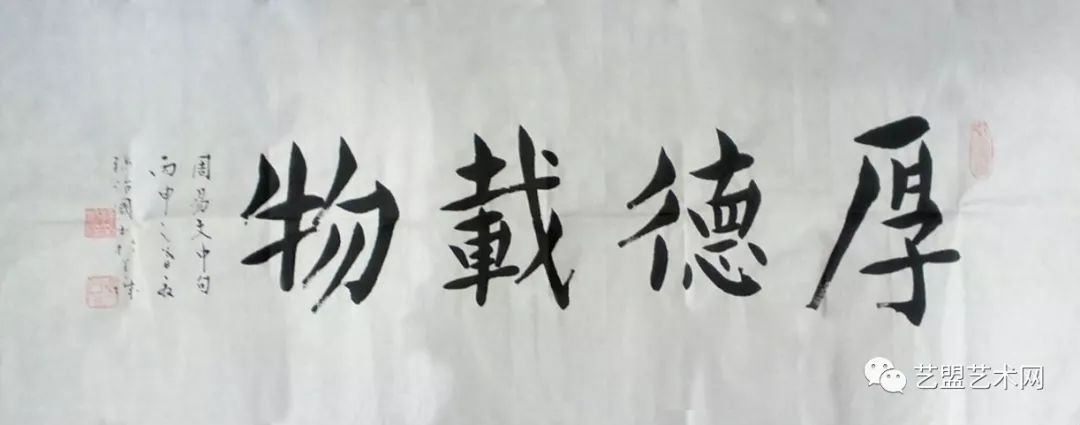 厚德載物
周易文中句
丙申之
艺盟艺术网